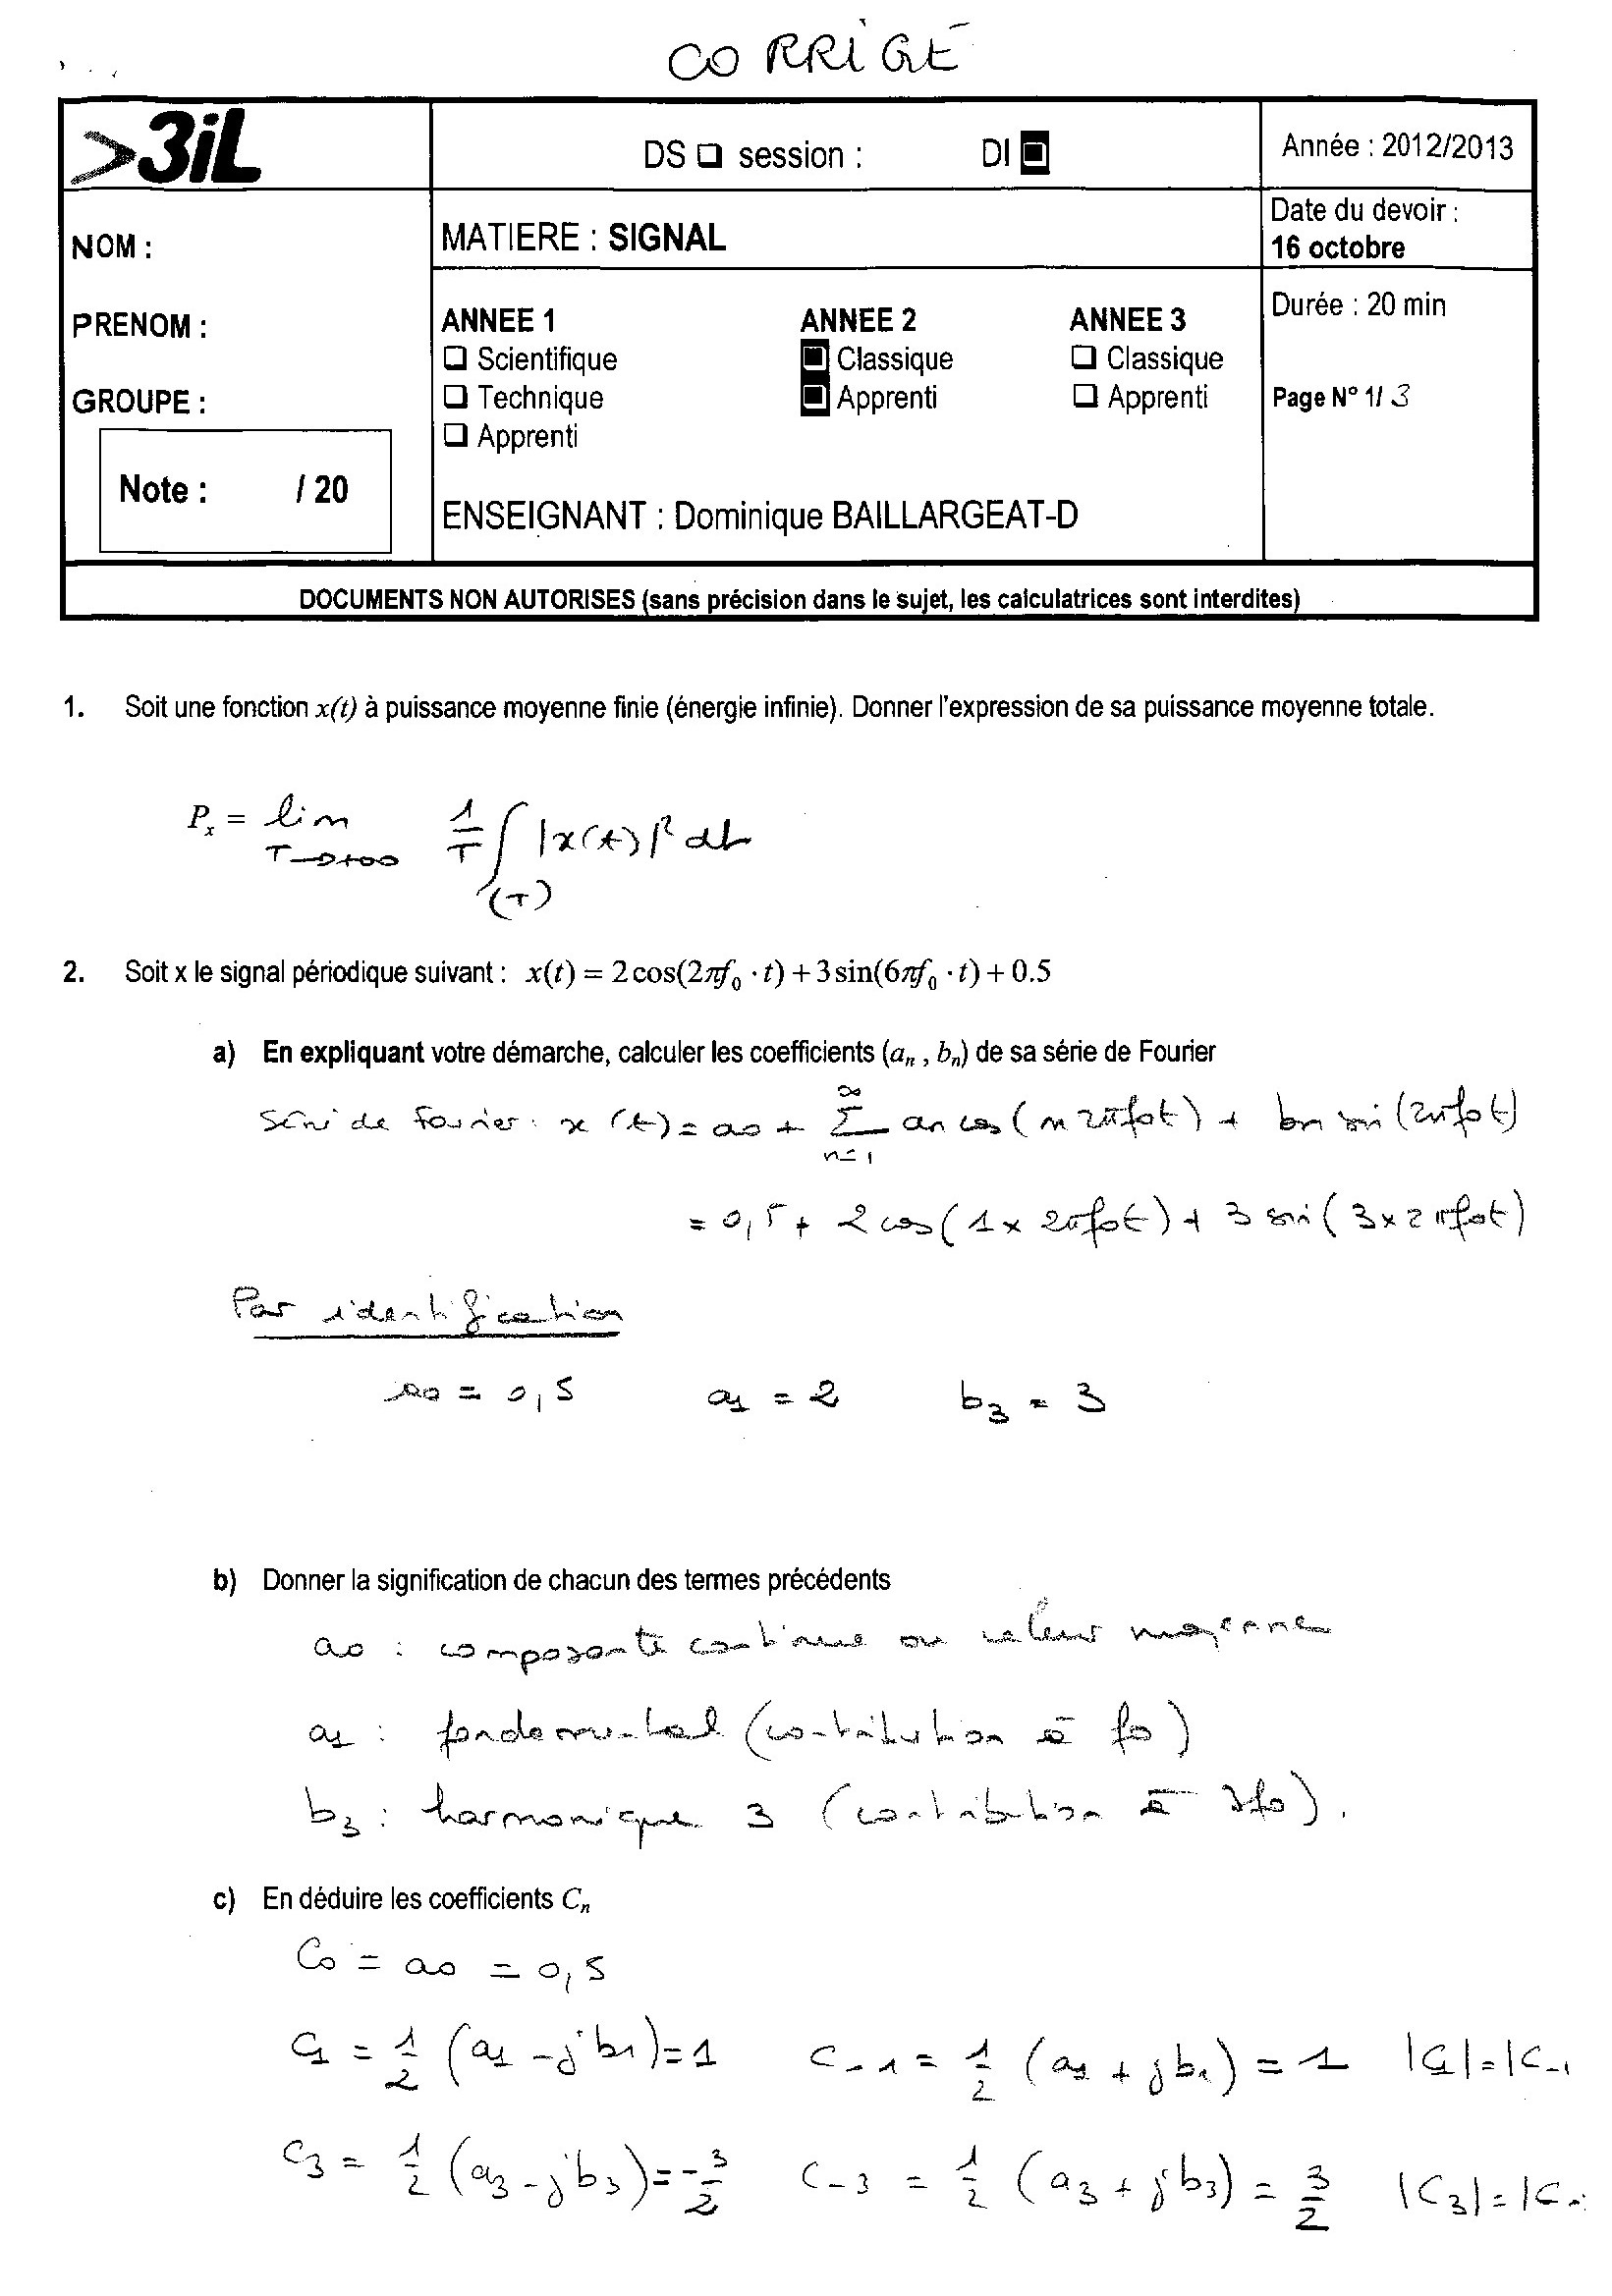 CORRIGÉ
>3iL
DS ❏ session : DI ❏
Année : 2012/2013
NOM :
MATIERE : SIGNAL
Date du devoir :
16 octobre
PRENOM :
ANNEE 1 ANNEE 2 ANNEE 3
Durée : 20 min
❏ Scientifique ❏ Classique ❏ Classique
❏ Technique ❏ Apprenti ❏ Apprenti
GROUPE :
Page N° 1/ 3
❏ Apprenti
Note : / 20
ENSEIGNANT : Dominique BAILLARGEAT-D
DOCUMENTS NON AUTORISES (sans précision dans le sujet, les calculatrices sont interdites)
1. Soit une fonction x(t) à puissance moyenne finie (énergie infinie). Donner l'expression de sa puissance moyenne totale.
Px = lim T→+∞ 1/T ∫(T) |x(t)|² dt
2. Soit x le signal périodique suivant : x(t) = 2cos(2πf₀ · t) + 3sin(6πf₀ · t) + 0.5
a) En expliquant votre démarche, calculer les coefficients (aₙ , bₙ) de sa série de Fourier
Série de Fourier : x(t) = a0 + Σ n=1 ∞ an cos(n 2πf0t) + bn sin(2πf0t)
= 0,5 + 2 cos(1 x 2πf0t) + 3 sin(3 x 2πf0t)
Par identification
a0 = 0,5 a1 = 2 b3 = 3
b) Donner la signification de chacun des termes précédents
a0 : composante continue ou valeur moyenne
a1 : fondamental (contribution à f0)
b3 : harmonique 3 (contribution à 3f0).
c) En déduire les coefficients Cₙ
C0 = a0 = 0,5
C1 = 1/2 (a1 - jb1) = 1 C-1 = 1/2 (a1 + jb1) = 1 |C1| = |C-1
C3 = 1/2 (a3 - jb3) = -3/2 C-3 = 1/2 (a3 + jb3) = 3/2 |C3| = |C-